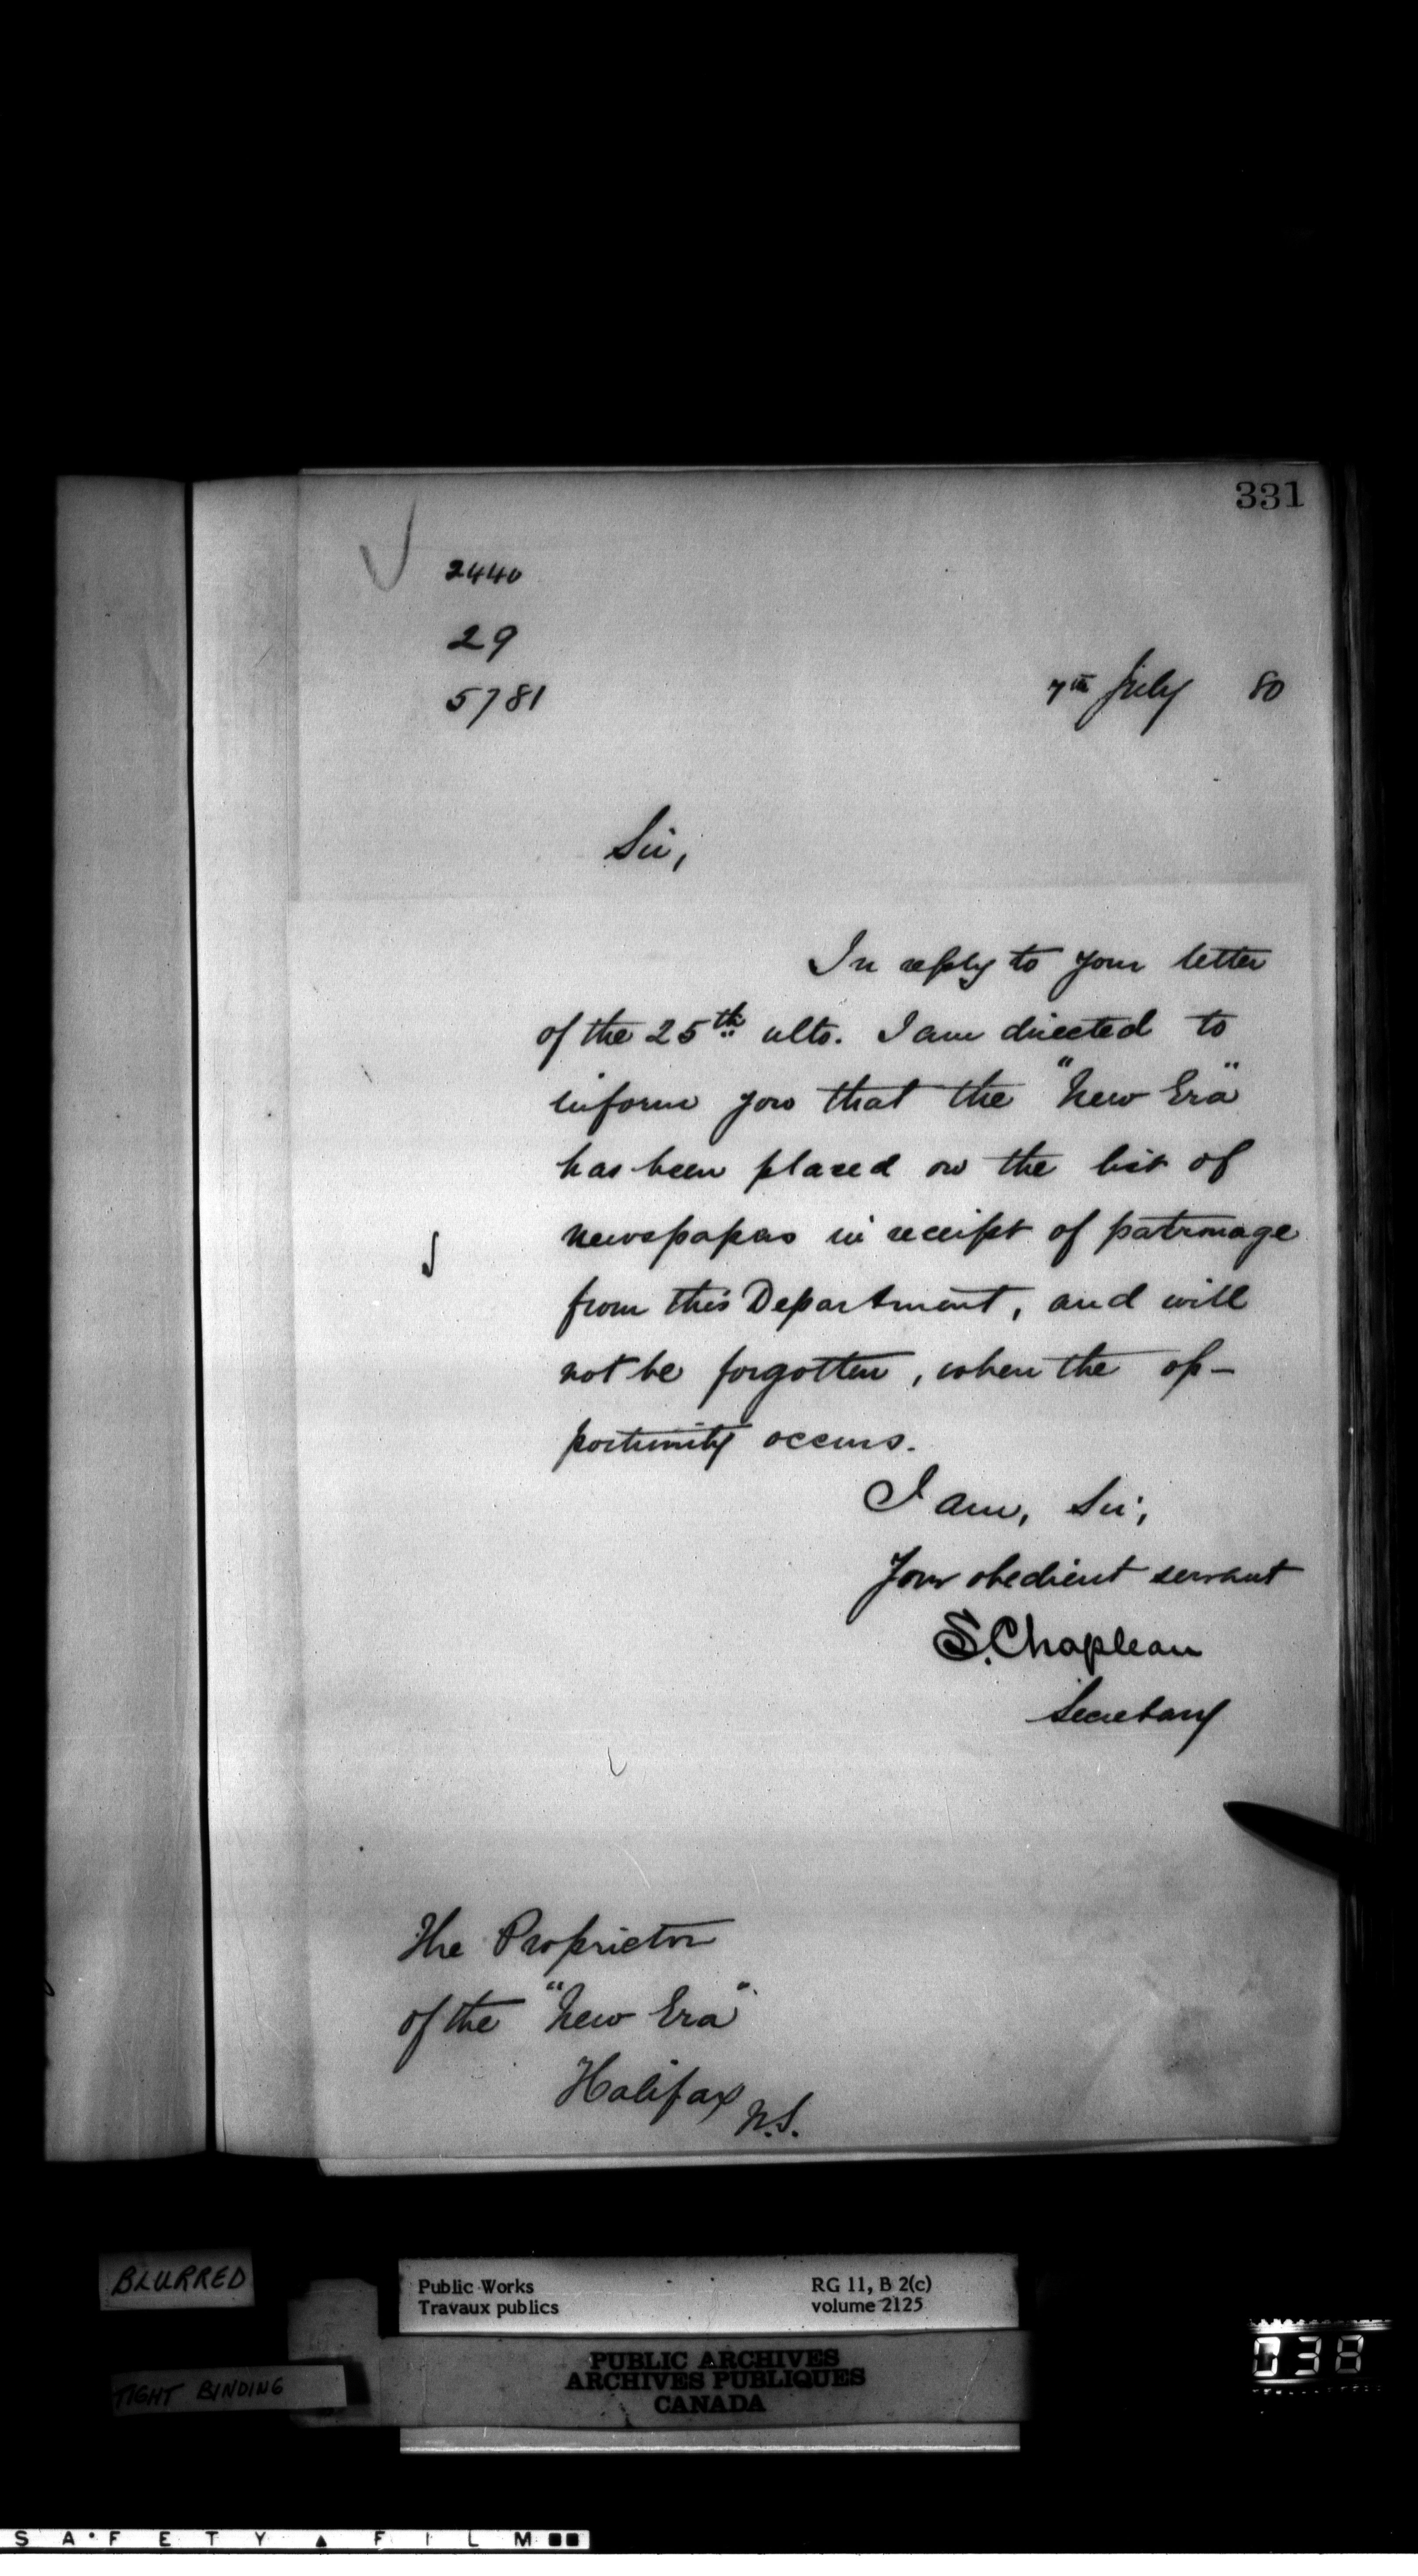 331
2440
29
5781
7th July 80
Sir,
In reply to your letter
of the 25th ulto. I am directed to
inform you that the "New Era"
has been placed on the list of
newspapers in receipt of patronage
from this Department, and will
not be forgotten, when the op-
portunity occurs.
I am, Sir,
Your obedient servant
S. Chapleau
Secretary
The Proprietor
of the "New Era"
Halifax N.S.
BLURRED
TIGHT BINDING
Public Works
Travaux publics
RG 11, B 2(c)
volume 2125
PUBLIC ARCHIVES
ARCHIVES PUBLIQUES
CANADA
038
SAFETY FILM